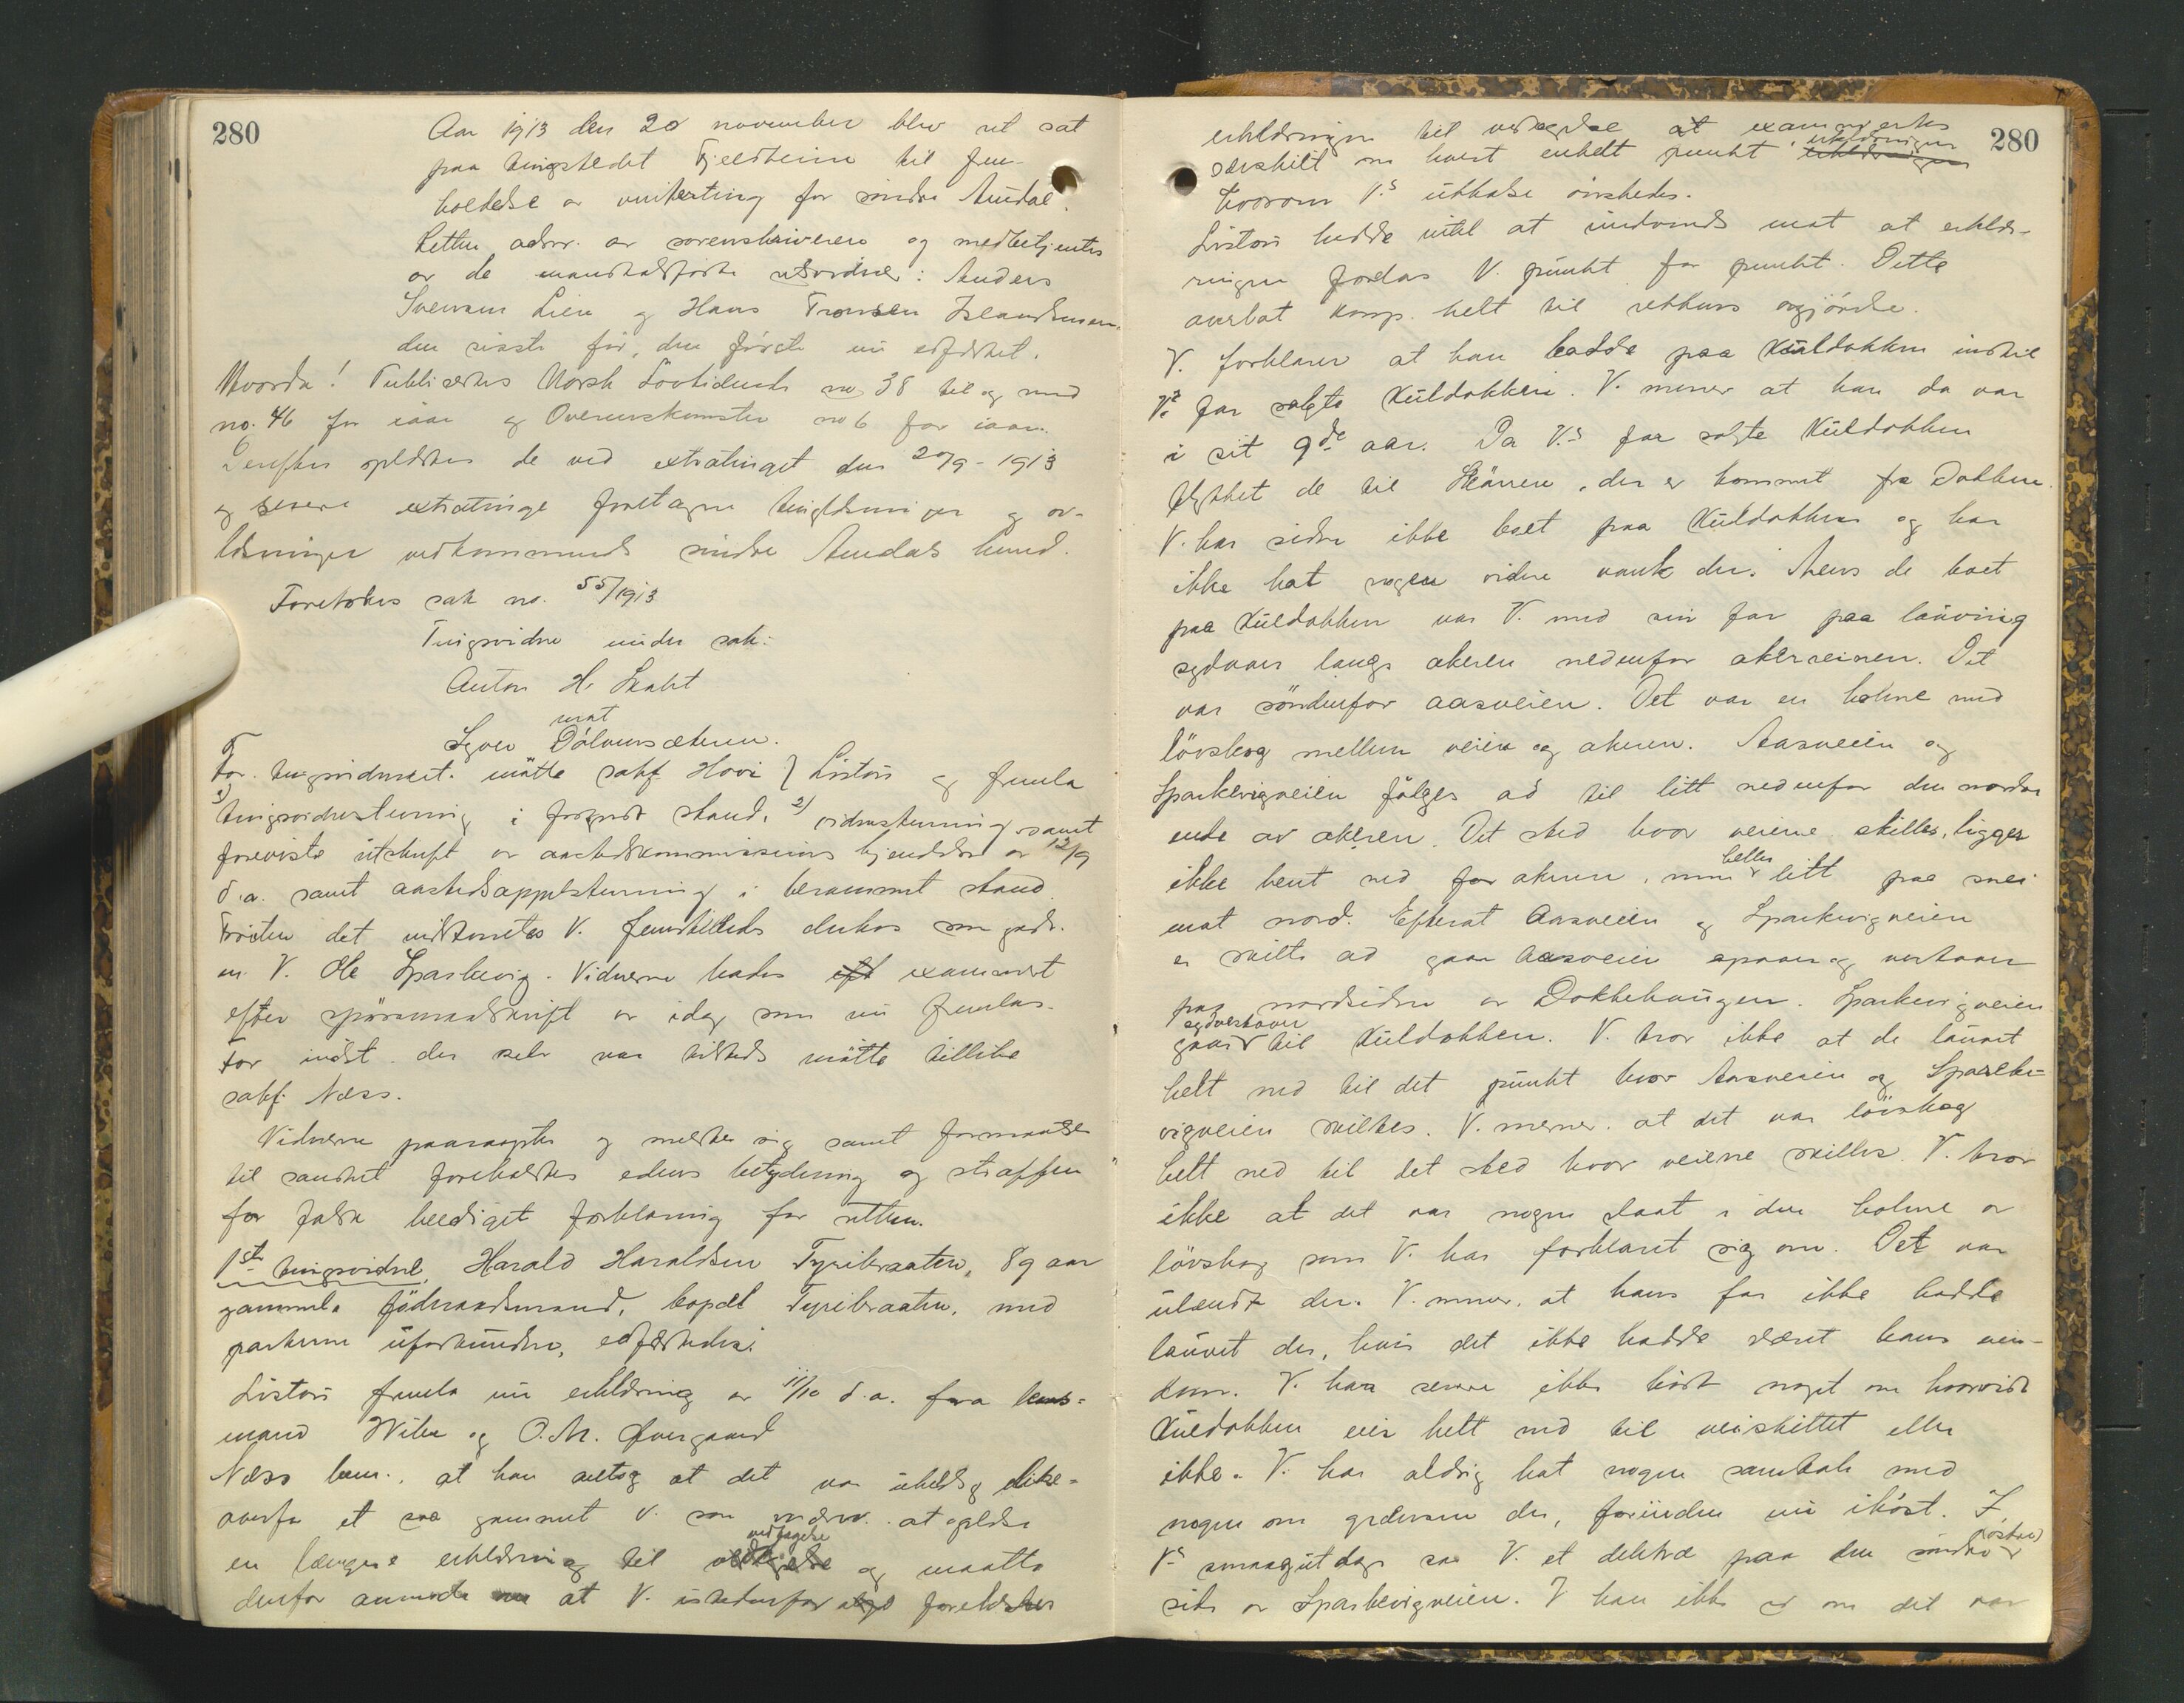 280
Aar 1913 den 20 november blev ret sat
paa tingstedet Fjeldheim til frem-
holdelse av vinterting for søndre Aurdal.
Retten adm. av sorenskriveren og medbetjentes
av de mandtalsførte vidner: Anders
Svensen Lien og Hans Tronsen Islandsmoen,
den sisste før, den første nu edfæstet.
Hvorda! Publisertes Norsk Lovtidende no 38 til og med
no. 46 for iaar og Overenskomster no 6 for iaar.
Derefter oplæstes de ved extratinget den 20/9 - 1913
og senere extratinge foretagne tinglæsninger og av-
læsninger vedkommende søndre Aurdals lensmd.
Foretokes sak no. 55/1913
Tingsvidne under sak:
Anton H. Skalet
mot
Syver Dølvensæteren.
For tingsvidnecit. møtte sakf. Hovi } Liston og freml.
1) tingsvidnestevning i forkynt stand, 2) vidnestevning samt
foreviste utskrift av aastedskommissionens kjendelse av 12/9
d.a. samt aastedsappelstevning i berammet stand.
Foruten det indstevnte V. fremstilledes dukos som godv.
m. V. Ole Sparkevig. Vidnerne bades examinert
efter spørsmaalsskrift av idag som nu fremlas.
For indst. der selv var tilstede møtte tillike
sakf. Næss.
Vidnerne paaraaptes og meldte sig samt formantes
til sandhet foreholdtes edens betydning og straffen
for falsk beediget forklaring for retten.
1ste tingsvidne, Harald Haraldsen Tyribraaten, 89 aar
gammel, føderaadsmand, bopæl Tyribraaten, med
parterne uforbunden, edfæstedes:
Liston fremla nu erklæring av 11/10 d.a. fra lens-
mand Wiben og O. M. Øvergaard
Næss bem., at han antog at det var uheldig like-
overfor et saa gammelt V. som nærv. at oplæse
en længere erklæring til vedtagelse og maatte
derfor anmode at V. istedenfor forelæses
280
erklæringen til vedtagelse at examinertes
særskilt om hvert enkelt punkt i erklæringen
hvorom V.s uttalelse ønskedes.
Liston hadde intet at indvende mot at erklæ-
ringen foreholdes V. punkt for punkt. Dette
overlot komp. helt til rettens avgjørelse.
V. forklarer at han bodde paa Kuldokken indtil
V.s far solgte Kuldokken. V. mener at han da var
i sit 9de aar. Da V.s far solgte Kuldokken
flyttet de til Skauren, der er kommet fra Dokken.
V. har siden ikke boet paa Kuldokken og har
ikke hat nogen videre vank der. Mens de boet
paa Kuldokken var V. med sin far paa lauving
sydover langs akeren nedenfor akerreinen. Det
var søndenfor aasveien. Det var en holme med
løvskog mellem veien og akeren. Aasveien og
Sparkevigveien følges ad til litt nedenfor den nordre
ende av akeren. Det sted hvor veiene skilles, ligger
ikke bent ned for akeren, men heller litt paa snei
mot nord. Efterat Aasveien og Sparkevigveien
er skilts ad gaar Aasveien opover og vestover
paa nordsiden av Dokkehaugen. Sparkevigveien
gaar sydvestover til Kuldokken. V. tror ikke at de lauvet
helt ned til det punkt hvor Aasveien og Sparke-
vigveien skiltes. V. mener at det var løvskog
helt ned til det sted hvor veiene skilles. V. tror
ikke at det var nogen slaat i den holme av
løvskog som V. har forklaret sig om. Det var
ulændt der. V. mener, at hans far ikke hadde
lauvet der, hvis det ikke hadde været hans eien-
dom. V. har senere ikke hørt noget om hvorvidt
Kuldokken eier helt ned til veiskillet eller
ikke. V. har aldrig hat nogen samtale med
nogen om grænsen der, foruten nu ihøst. I
V.s smaagutdage saa V. et deletræ paa den søndre (østre)
side av Sparkevigveien. V. kan ikke si om det var